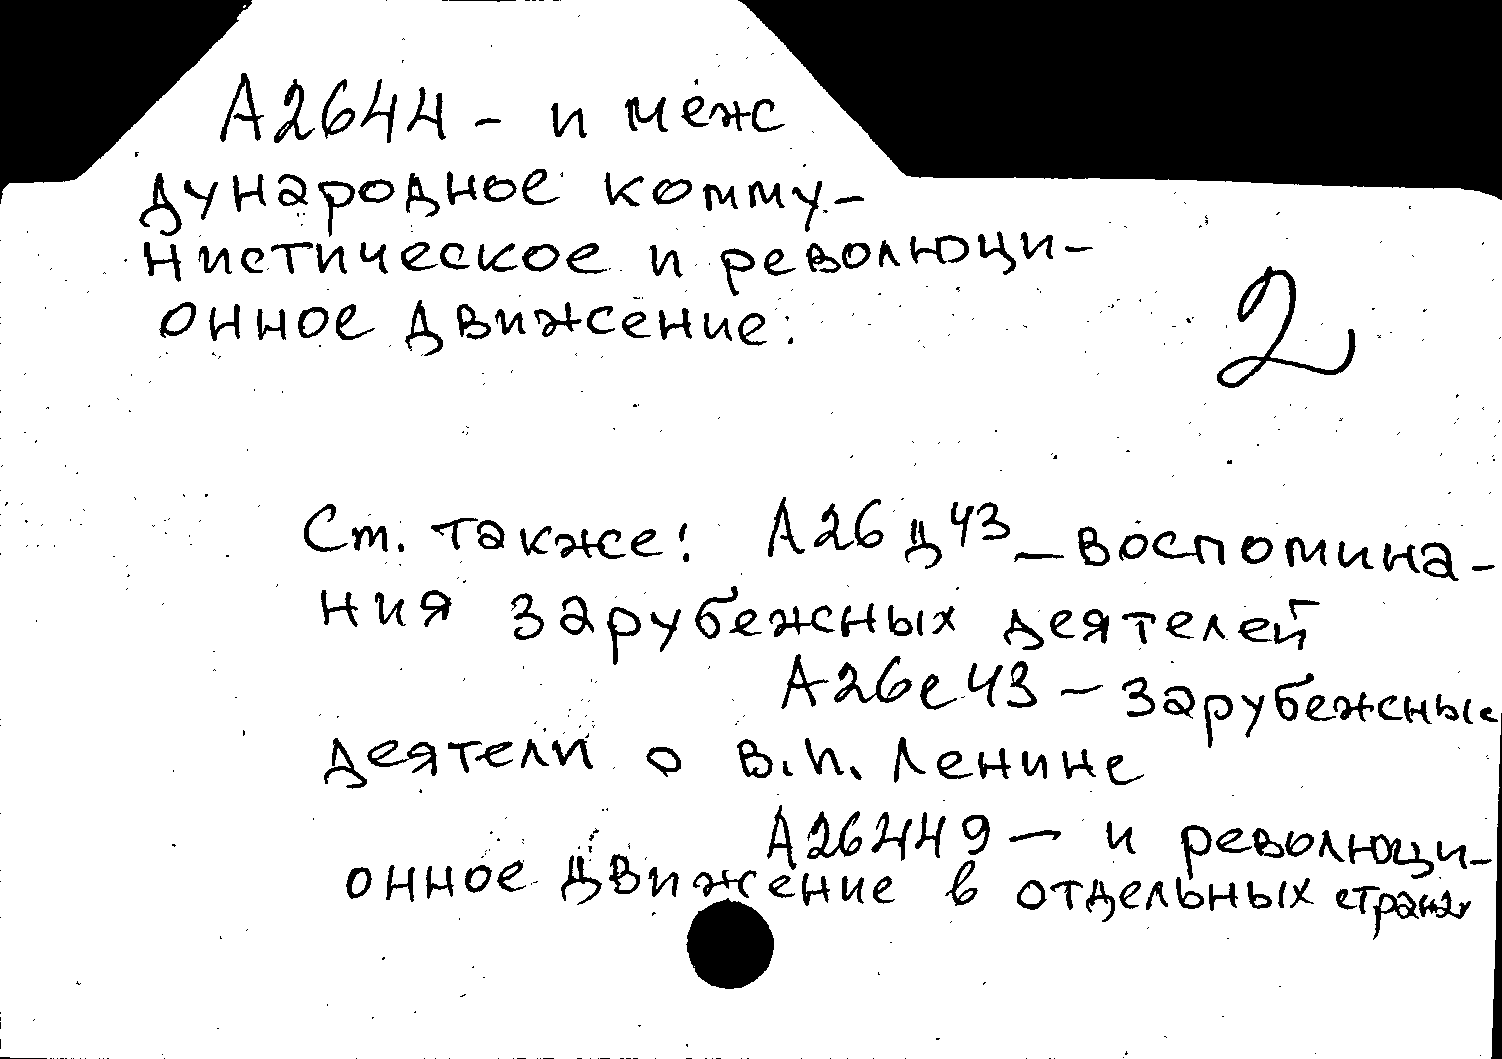 А2644 - и меж
дународное комму-
нистическое и революци-
онное движение.
2
См. также: А26д43 - воспомина-
ния зарубежных деятелей
А26е43 - зарубежные
деятели о В.И. Ленине
А26449 - и революци-
онное движение в отдельных странах